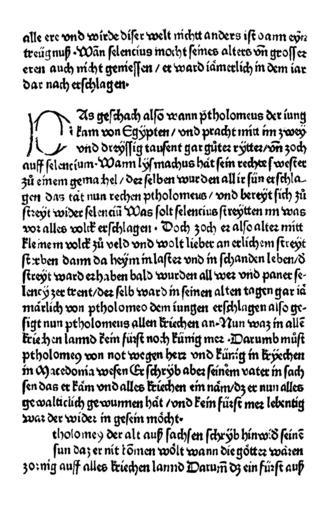 alle ere vnd wirde diser welt nichtt anders ist dann eyn
treügnuß · Wān selencius mocht seines alters vñ grosser
eren auch nicht geniessen / er ward iämerlich in dem iar
dar nach erschlagen ·
DAs geschach also wann ptholomeus der iung
kam von Egÿpten / vnd pracht mitt im zweÿ
vnd dreÿssig tausent gar gůter rÿtter / vñ zoch
auff selencium · Wann lÿsmachus hat sein rechte swester
zů einem gemahel / der selben wurden all ir sün erschla
gen das tät nun rechen ptholomeus / vnd bereÿt sich zů
streÿt wider selenciū Was solt selencius streÿtten im was
vor alles volck erschlagen · Doch zoch er also alter mitt
kleinem volck zů veld vnd wolt lieber an erlichem streÿt
sterben dann da heÿm in laster vnd in schanden leben / d
streÿt ward erhaben bald wurden all wer vnd paner se-
lencÿ zertrent / der selb ward in seinen alten tagen gar iä
märlich von ptholomeo dem iungen erschlagen also ge-
sigt nun ptholomeus allen kriechen an · Nun waz in allē
kriechen lannd kein fürst noch künig mer · Darumb můst
ptholomeus von not wegen herr vnd künig in krÿechen
in Macedonia wesen Er schrÿb aber seinem vater in sach
sen das er käm vnd alles kriechen ein näm / dz er nun alles
gewalticlich gewunnen hät / vnd kein fürst mer lebentig
war der wider in gesein möcht ·
tholomeus der alt auß sachsen schrÿb hinwid seinē
sun daz er nit komen wölt wann die götter wären
zornig auff alles kriechen lannd Darum̄ dz ein fürst auß